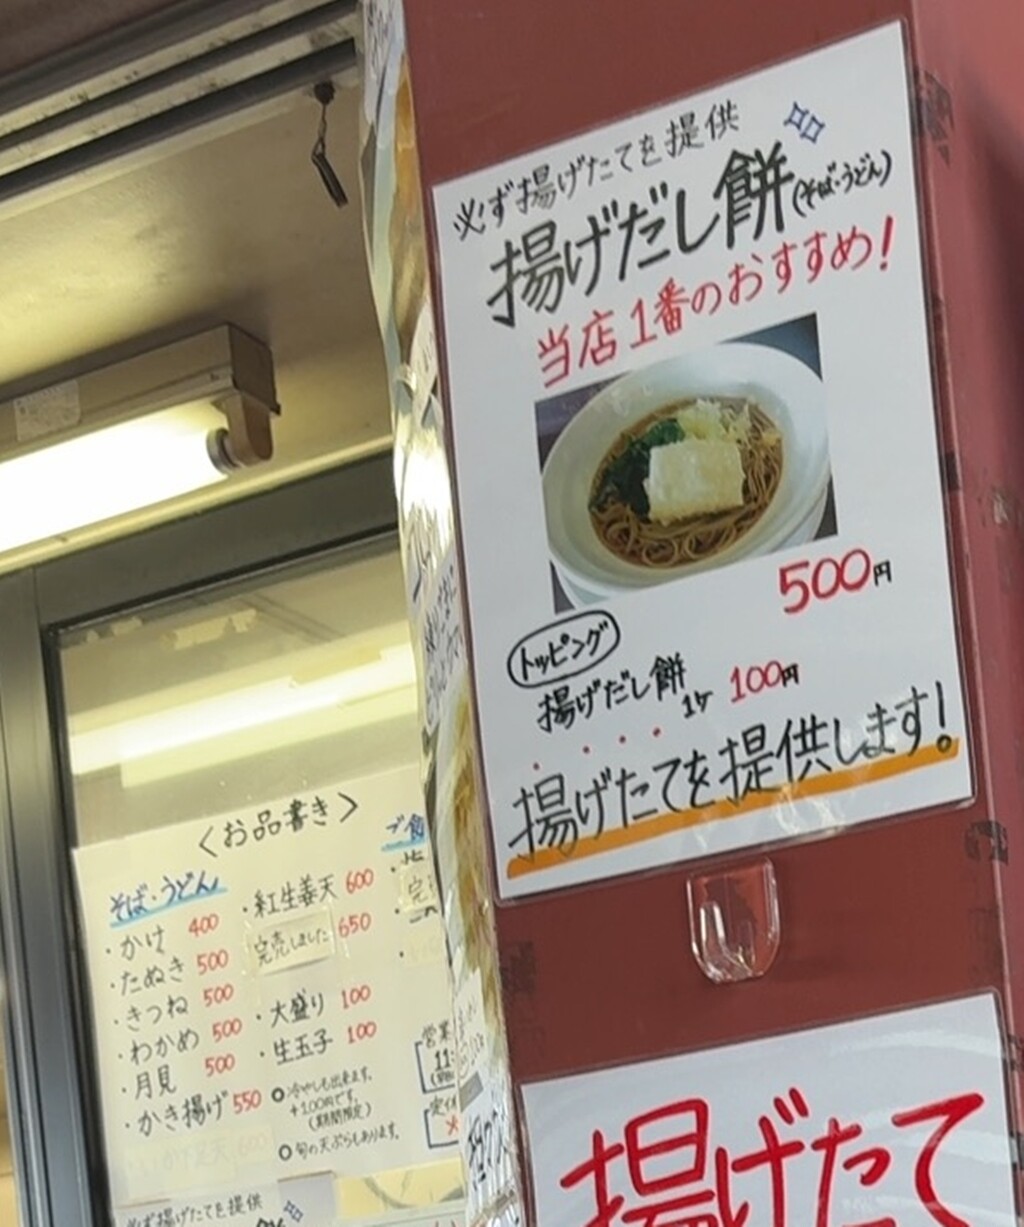 必ず揚げたてを提供
揚げだし餅(そば・うどん)
当店1番のおすすめ!
500円
トッピング
揚げだし餅 1ヶ 100円
揚げたてを提供します!
揚げたて
<お品書き>
そば・うどん
・かけ 400
・たぬき 500
・きつね 500
・わかめ 500
・月見 500
・かき揚げ 550
・紅生姜天 600
完売しました 650
・大盛り 100
・生玉子 100
○冷やしも出来ます。
+100円です。
(期間限定)
○旬の天ぷらもあります。
ご
営業
11:
必ず揚げたてを提供